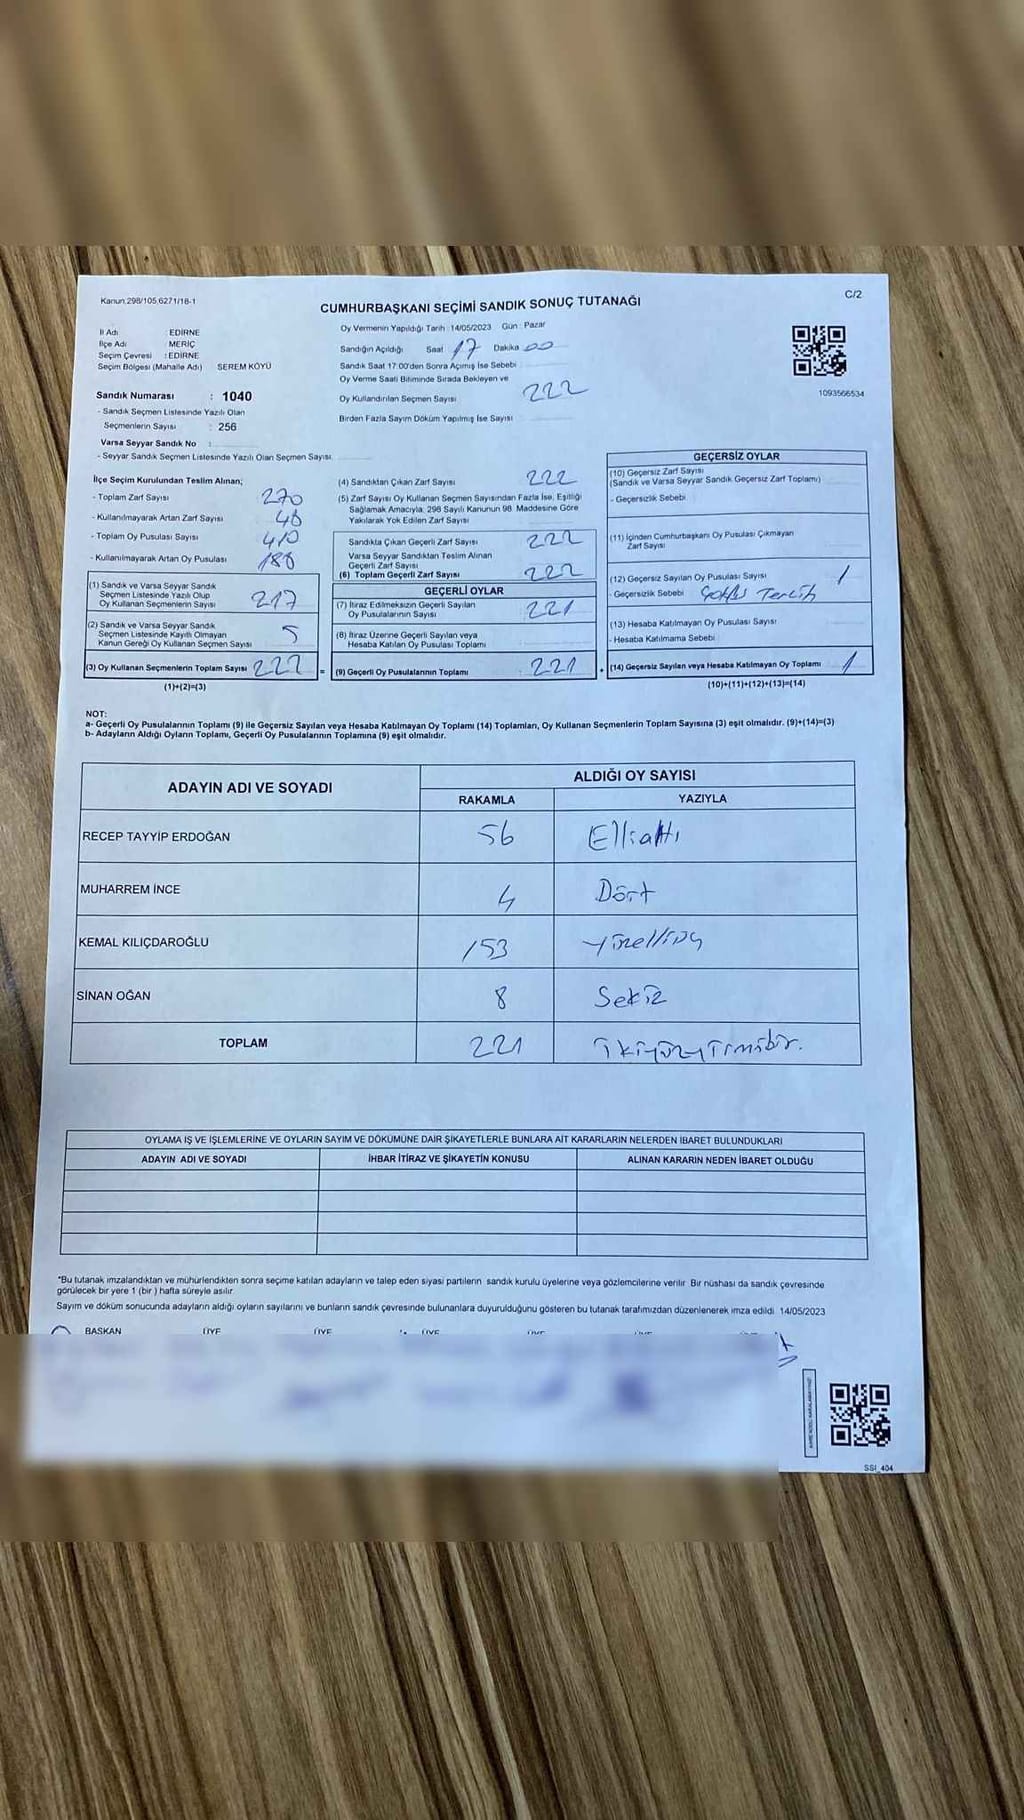 Kanun.298/105,6271/18-1
C/2
CUMHURBAŞKANI SEÇİMİ SANDIK SONUÇ TUTANAĞI
İl Adı : EDİRNE
İlçe Adı : MERİÇ
Seçim Çevresi : EDİRNE
Seçim Bölgesi (Mahalle Adı) SEREM KÖYÜ
Sandık Numarası : 1040
- Sandık Seçmen Listesinde Yazılı Olan
Seçmenlerin Sayısı : 256
Varsa Seyyar Sandık No :
- Seyyar Sandık Seçmen Listesinde Yazılı Olan Seçmen Sayısı.
Oy Vermenin Yapıldığı Tarih : 14/05/2023 Gün : Pazar
Sandığın Açıldığı Saat 17 Dakika 00
Sandık Saat 17:00'den Sonra Açımış İse Sebebi
Oy Verme Saati Bitiminde Sırada Bekleyen ve
Oy Kullandırılan Seçmen Sayısı 222
Birden Fazla Sayım Döküm Yapılmış İse Sayısı
1093566534
İlçe Seçim Kurulundan Teslim Alınan;
- Toplam Zarf Sayısı 270
- Kullanılmayarak Artan Zarf Sayısı 48
- Toplam Oy Pusulası Sayısı 410
- Kullanılmayarak Artan Oy Pusulası 188
(1) Sandık ve Varsa Seyyar Sandık
Seçmen Listesinde Yazılı Olup
Oy Kullanan Seçmenlerin Sayısı 217
(2) Sandık ve Varsa Seyyar Sandık
Seçmen Listesinde Kayıtlı Olmayan
Kanun Gereği Oy Kullanan Seçmen Sayısı 5
(3) Oy Kullanan Seçmenlerin Toplam Sayısı 222 =
(1)+(2)=(3)
(4) Sandıktan Çıkan Zarf Sayısı 222
(5) Zarf Sayısı Oy Kullanan Seçmen Sayısından Fazla İse, Eşitliği
Sağlamak Amacıyla, 298 Sayılı Kanunun 98. Maddesine Göre
Yakılarak Yok Edilen Zarf Sayısı
Sandıkta Çıkan Geçerli Zarf Sayısı 222
Varsa Seyyar Sandıktan Teslim Alınan
Geçerli Zarf Sayısı
(6) Toplam Geçerli Zarf Sayısı 222
GEÇERLİ OYLAR
(7) İtiraz Edilmeksizin Geçerli Sayılan
Oy Pusulalarının Sayısı 221
(8) İtiraz Üzerine Geçerli Sayılan veya
Hesaba Katılan Oy Pusulası Toplamı
(9) Geçerli Oy Pusulalarının Toplamı 221 +
GEÇERSİZ OYLAR
(10) Geçersiz Zarf Sayısı
(Sandık ve Varsa Seyyar Sandık Geçersiz Zarf Toplamı)
- Geçersizlik Sebebi
(11) İçinden Cumhurbaşkanı Oy Pusulası Çıkmayan
Zarf Sayısı
(12) Geçersiz Sayılan Oy Pusulası Sayısı 1
- Geçersizlik Sebebi Tercih
(13) Hesaba Katılmayan Oy Pusulası Sayısı
- Hesaba Katılmama Sebebi
(14) Geçersiz Sayılan veya Hesaba Katılmayan Oy Toplamı 1
(10)+(11)+(12)+(13)=(14)
NOT:
a- Geçerli Oy Pusulalarının Toplamı (9) ile Geçersiz Sayılan veya Hesaba Katılmayan Oy Toplamı (14) Toplamları, Oy Kullanan Seçmenlerin Toplam Sayısına (3) eşit olmalıdır. (9)+(14)=(3)
b- Adayların Aldığı Oyların Toplamı, Geçerli Oy Pusulalarının Toplamına (9) eşit olmalıdır.
ADAYIN ADI VE SOYADI
ALDIĞI OY SAYISI
RAKAMLA YAZIYLA
RECEP TAYYİP ERDOĞAN 56 Ellialtı
MUHARREM İNCE 4 Dört
KEMAL KILIÇDAROĞLU 153 yüzelliüç
SİNAN OĞAN 8 Sekiz
TOPLAM 221 ikiyüzyirmibir.
OYLAMA İŞ VE İŞLEMLERİNE VE OYLARIN SAYIM VE DÖKÜMÜNE DAİR ŞİKAYETLERLE BUNLARA AİT KARARLARIN NELERDEN İBARET BULUNDUKLARI
ADAYIN ADI VE SOYADI İHBAR İTİRAZ VE ŞİKAYETİN KONUSU ALINAN KARARIN NEDEN İBARET OLDUĞU
*Bu tutanak imzalandıktan ve mühürlendikten sonra seçime katılan adayların ve talep eden siyasi partilerin sandık kurulu üyelerine veya gözlemcilerine verilir. Bir nüshası da sandık çevresinde
görülecek bir yere 1 (bir) hafta süreyle asılır.
Sayım ve döküm sonucunda adayların aldığı oyların sayılarını ve bunların sandık çevresinde bulunanlara duyurulduğunu gösteren bu tutanak tarafımızdan düzenlenerek imza edildi. 14/05/2023
BAŞKAN ÜYE ÜYE ÜYE ÜYE ÜYE
SSI_404